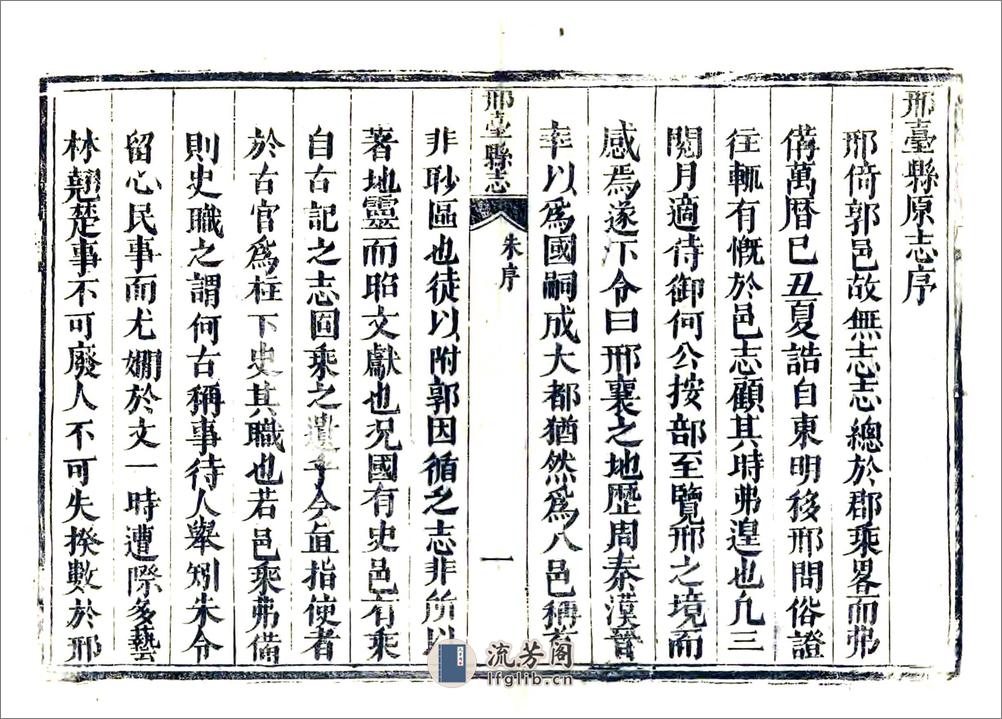 邢臺縣原志序
邢倚郭邑故無志志總於郡乘畧而弗
備萬曆己丑夏誥自東明移邢問俗證
往輒有慨於邑志顧其時弗遑也凡三
閱月適侍御何公按部至覽邢之境而
感焉遂下令曰邢襄之地歷周秦漢晉
率以爲國嗣成大都猶然爲八邑稱首
邢臺縣志
朱序
一
非眇區也徒以附郭因循乏志非所以
著地靈而昭文獻也况國有史邑有乘
自古記之志固乘之遺乎今直指使者
於古官爲柱下史其職也若邑乘弗備
則史職之謂何古稱事待人舉矧朱令
留心民事而尤嫺於文一時遭際多藝
林翹楚事不可廢人不可失揆數於邢
流芳阁
lfglib.cn